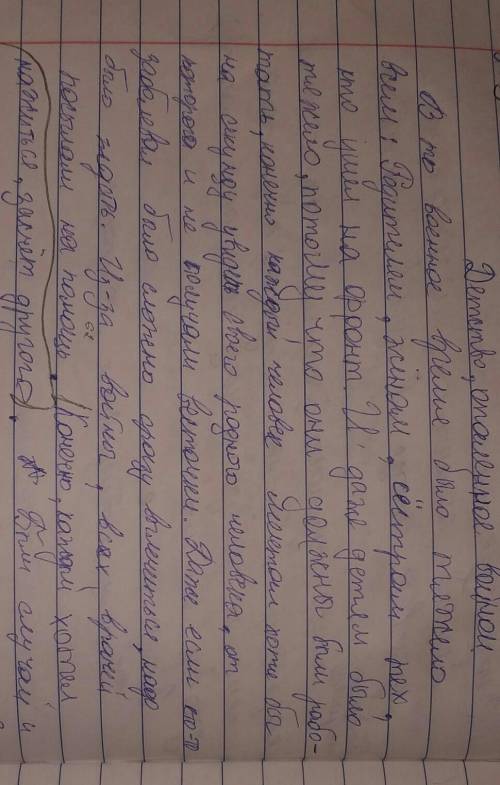 Детство, опаленное войной
В то военное время было тяжело
всем: Родителям, жёнам, сёстрам тех,
кто ушел на фронт. И даже детям было
тяжело, потому что они должны были рабо-
тать, конечно каждый человек мечтал хотя бы
на секунду увидеть своего родного человека, от
которого и не получали весточки. Даже если кто-то
заболевал было сложно сразу вылечиться, надо
было ждать. Из-за войны, всех врачей
посылали на помощь. (Конечно, каждый хотел
, другого). Были случаи и